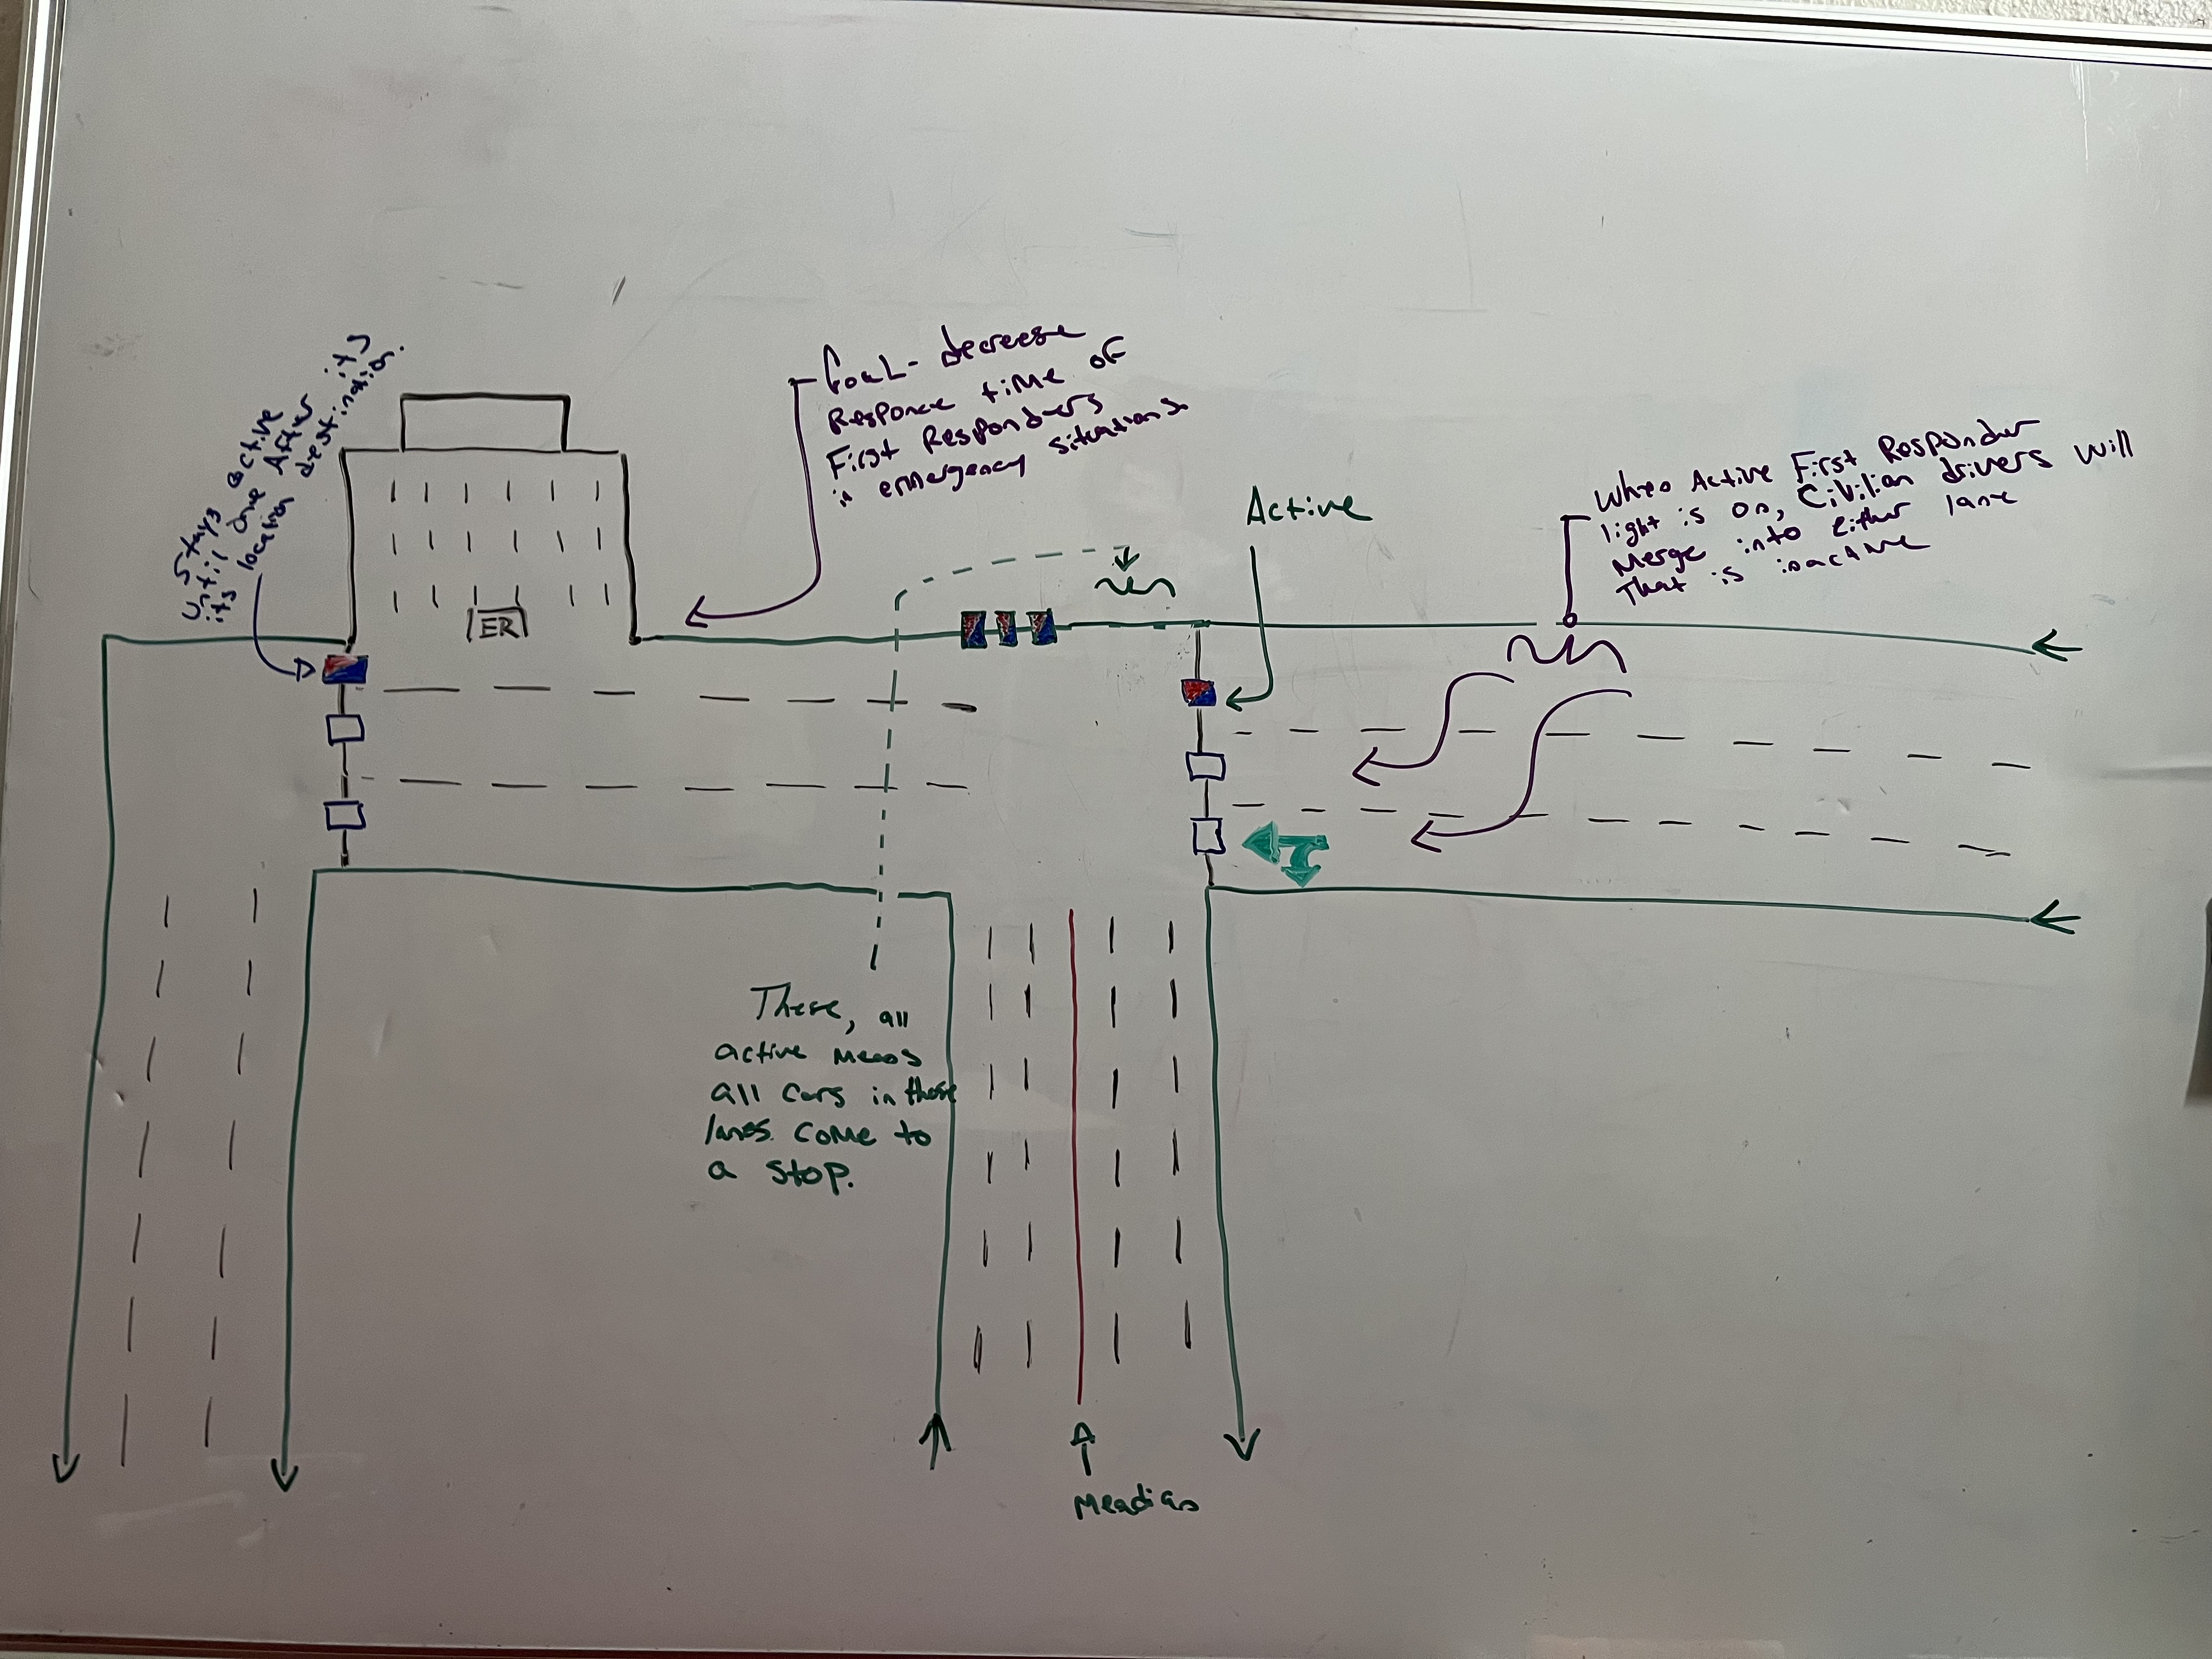 Stays active
Until one After it's
its location destination.
Goal - decrease
Responce time of
First Responders
in emergency situations
Active
When Active First Responder
light is on, Civilian drivers will
Merge into either lane
That is inactive
ER
These, all
active means
all cars in those
lanes come to
a stop.
Meadian